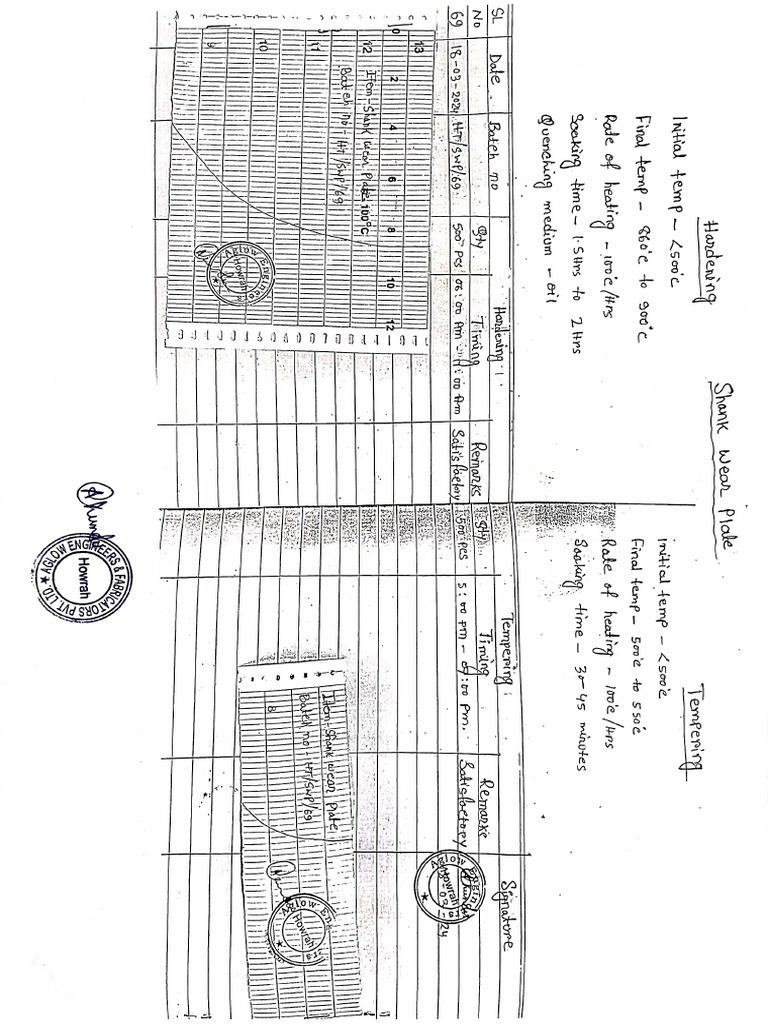 Shank Wear Plate
Hardening
Initial temp - <500°c
Final temp - 860°c to 900°c
Rate of heating - 100°c/Hrs
Soaking time - 1.5Hrs to 2Hrs
Quenching medium - oil
Tempering
Initial temp - <500°c
Final temp - 500°c to 550°c
Rate of heading - 100°c/Hrs
Soaking time - 30-45 minutes
Hardening Tempering
SL No Date Bateh no Qty Timing Remarks Qty Timing Remarks Signature
69 18-03-2024 HT/SWP/69 500 pcs 06:00 Am 11:00 Am Satisfactory 500 pcs 5:00 pm - 07:00 Pm. Satisfactory
13
0 2 4 6 8 10 12
12 Item - Shank Wear Plate 100°C
Bateh no - HT/SWP/69
11
10
9
Aglow Engine
Howrah
Item - Shank Wear Plate
Bateh no - HT/SWP/69
8
Aglow Eng
Howrah
Aglow Engin
Howrah
AGLOW ENGINEERS & FABRICATORS PVT. LTD.
Howrah